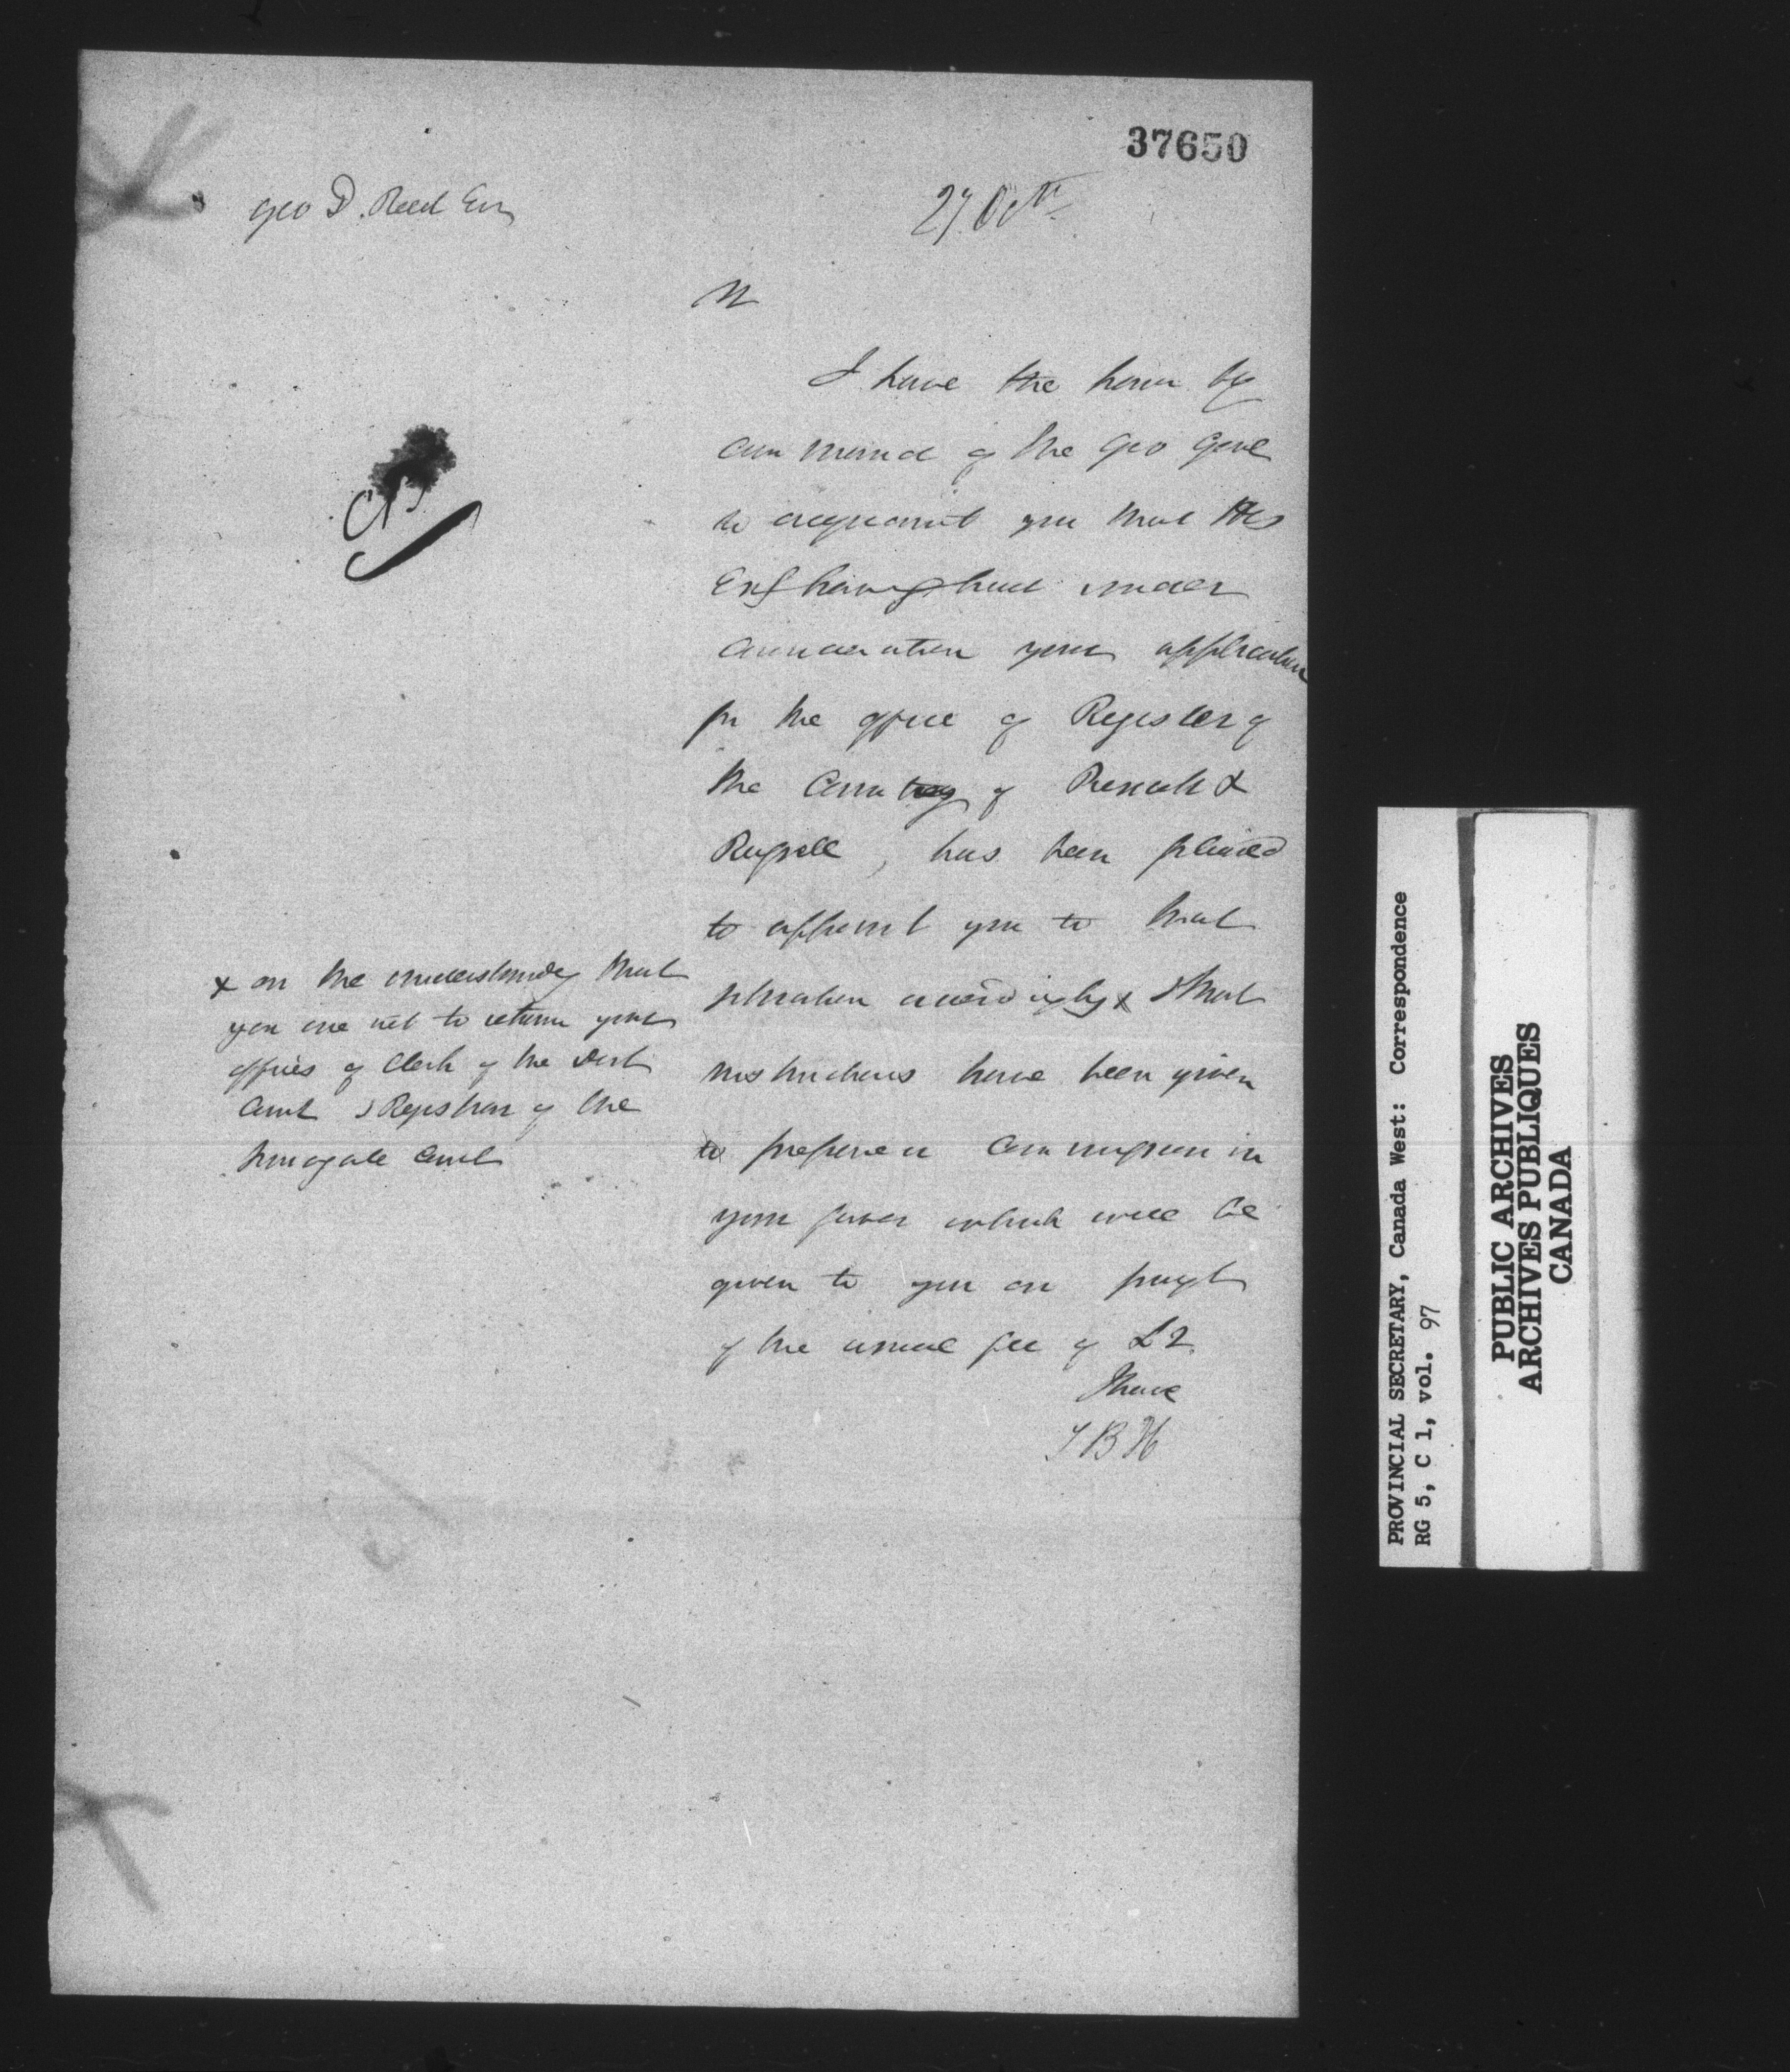 37650
Geo D. Reed Esq
27 Octr
Sir
I have the honor by
command of the Gov Genl
to acquaint you that His
Exc having had under
consideration your application
for the office of Register of
the County of Prescott &
Russell, has been pleased
to appoint you to that
situation accordingly x & that
instructions have been given
to prepare a Commission in
your favor which will be
given to you on paymt
of the usual fee of £2
I have
x on the understanding that
you are not to retain your
offices of Clerk of the Dist
Court & Registrar of the
Surrogate Court
PROVINCIAL SECRETARY, Canada West: Correspondence
RG 5, C 1, vol. 97
PUBLIC ARCHIVES
ARCHIVES PUBLIQUES
CANADA